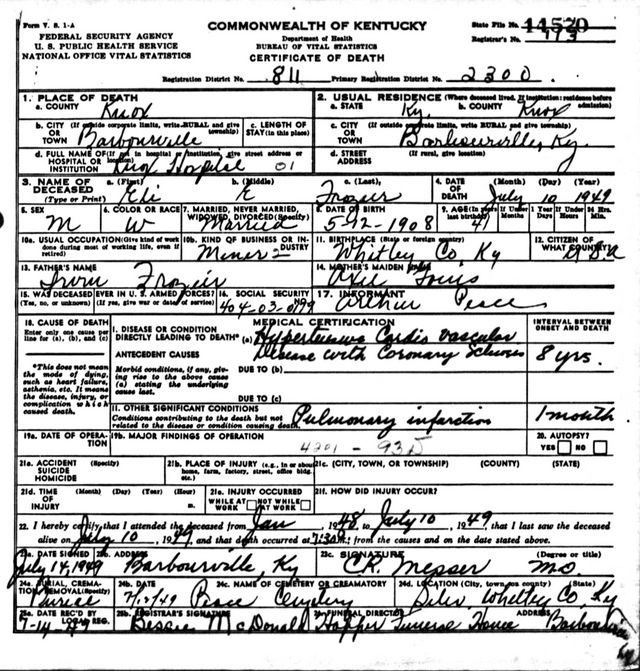 Form V. S. 1-A
COMMONWEALTH OF KENTUCKY
State File No. 14520
FEDERAL SECURITY AGENCY
Department of Health
Registrar's No. 113
U. S. PUBLIC HEALTH SERVICE
BUREAU OF VITAL STATISTICS
NATIONAL OFFICE VITAL STATISTICS
CERTIFICATE OF DEATH
Registration District No. 811 Primary Registration District No. 2300
1. PLACE OF DEATH
2. USUAL RESIDENCE (Where deceased lived. If institution: residence before admission)
a. COUNTY Knox
a. STATE Ky. b. COUNTY Knox
b. CITY (If outside corporate limits, write RURAL and give township) OR TOWN Barbourville
c. LENGTH OF STAY (in this place)
c. CITY (If outside corporate limits, write RURAL and give township) OR TOWN Barbourville, Ky.
d. FULL NAME OF (If not in hospital or institution, give street address or location) HOSPITAL OR INSTITUTION Knox Hospital 01
d. STREET ADDRESS (If rural, give location)
3. NAME OF DECEASED (Type or Print)
a. (First) b. (Middle) K c. (Last) Frozier
4. DATE OF DEATH (Month) (Day) (Year) July 10 1949
5. SEX M
6. COLOR OR RACE W
7. MARRIED, NEVER MARRIED, WIDOWED, DIVORCED (Specify) Married
8. DATE OF BIRTH 5-12-1908
9. AGE (In years last birthday) 41
If Under 1 Year Months Days
If Under 24 Hrs. Hours Min.
10a. USUAL OCCUPATION (Give kind of work done during most of working life, even if retired)
10b. KIND OF BUSINESS OR INDUSTRY Miner 2
11. BIRTHPLACE (State or foreign country) Whitley Co. Ky
12. CITIZEN OF WHAT COUNTRY?
13. FATHER'S NAME Irvin Frozier
14. MOTHER'S MAIDEN NAME
15. WAS DECEASED EVER IN U. S. ARMED FORCES? (Yes, no, or unknown) (If yes, give war or dates of service)
16. SOCIAL SECURITY NO.
17. INFORMANT Arthur Peace
18. CAUSE OF DEATH
Enter only one cause per line for (a), (b), and (c)
MEDICAL CERTIFICATION
INTERVAL BETWEEN ONSET AND DEATH
I. DISEASE OR CONDITION DIRECTLY LEADING TO DEATH* (a) Hypertensive Cardio Vascular
ANTECEDENT CAUSES Disease with Coronary 8 yrs.
*This does not mean the mode of dying, such as heart failure, asthenia, etc. It means the disease, injury, or complication which caused death.
Morbid conditions, if any, giving rise to the above cause (a) stating the underlying cause last.
DUE TO (b)
DUE TO (c)
II. OTHER SIGNIFICANT CONDITIONS
Conditions contributing to the death but not related to the disease or condition causing death. Pulmonary infarction 1 month
19a. DATE OF OPERATION
19b. MAJOR FINDINGS OF OPERATION
20. AUTOPSY?
YES NO
4201 - 93D
21a. ACCIDENT SUICIDE HOMICIDE (Specify)
21b. PLACE OF INJURY (e.g., in or about home, farm, factory, street, office bldg. etc.)
21c. (CITY, TOWN, OR TOWNSHIP) (COUNTY) (STATE)
21d. TIME OF INJURY (Month) (Day) (Year) (Hour) m.
21e. INJURY OCCURRED WHILE AT WORK NOT WHILE AT WORK
21f. HOW DID INJURY OCCUR?
22. I hereby certify that I attended the deceased from Jan 1948 to July 10 1949 that I last saw the deceased
alive on July 10 1949 and that death occurred at from the causes and on the date stated above.
23a. DATE SIGNED July 14, 1949
23b. ADDRESS Barbourville, Ky
23c. SIGNATURE C.R. Messer (Degree or title) M.D.
24a. BURIAL, CREMATION, REMOVAL (Specify) Burial
24b. DATE
24c. NAME OF CEMETERY OR CREMATORY Cemetery
24d. LOCATION (City, town, or county) (State) Siler Whitley Co Ky
25a. DATE REC'D BY LOCAL REG. 7-14-49
25b. REGISTRAR'S SIGNATURE Bessie McDonald
26. FUNERAL DIRECTOR Hopper Funeral Home ADDRESS